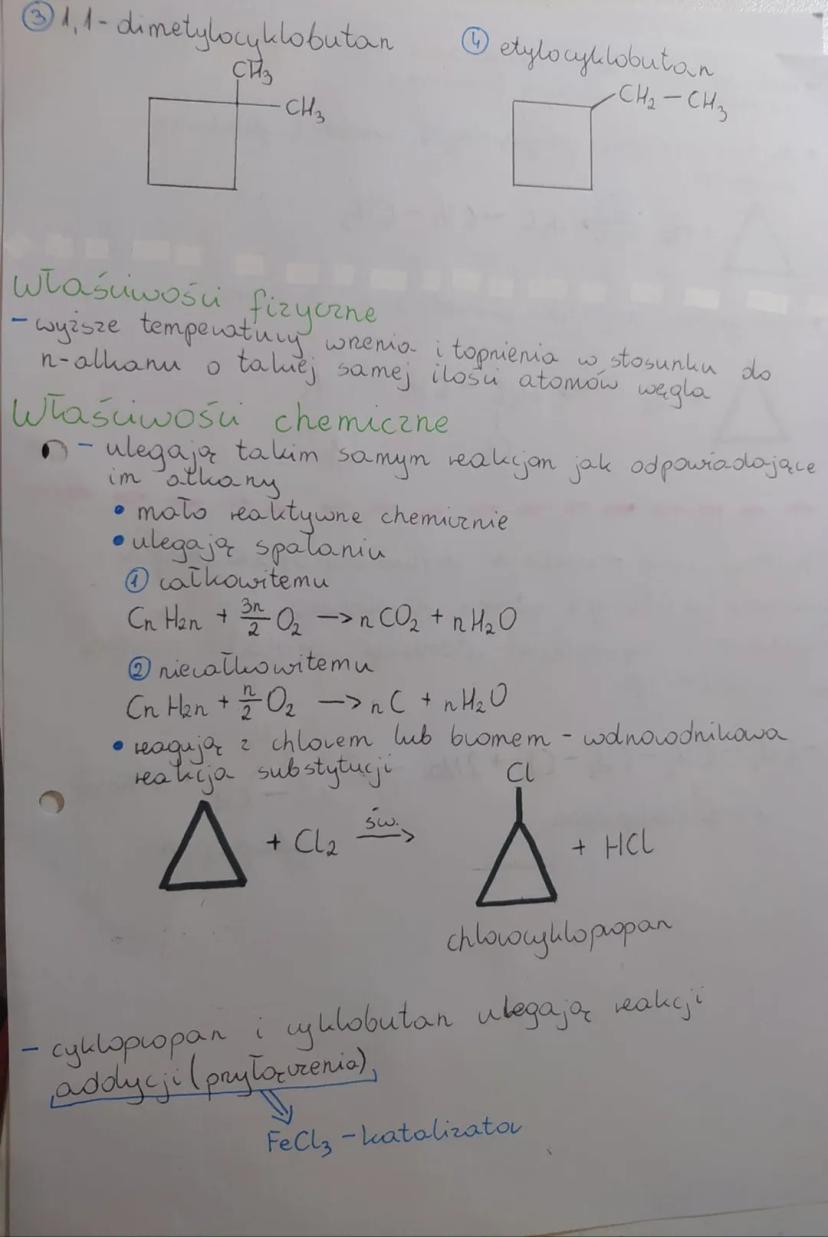 ③ 1,1-dimetylocyklobutan
④ etylocyklobutan
CH₃
CH₃
CH₂ – CH₃
Właściwości fizyczne
- wyższe temperatury wrzenia i topnienia w stosunku do
n-alkanu o takiej samej ilości atomów węgla
Właściwości chemiczne
- ulegają takim samym reakcjom jak odpowiadające
im alkany
• mało reaktywne chemicznie
• ulegają spalaniu
① całkowitemu
CnH2n + 3n/2 O₂ → nCO₂ + nH₂O
② niecałkowitemu
CnH2n + n/2 O₂ → nC + nH₂O
• reagują z chlorem lub bromem - wolnorodnikowa
reakcja substytucji
Cl
+ Cl₂ św. → + HCl
chlorocyklopropan
- cyklopropan i cyklobutan ulegają reakcji
addycji (przyłączenia)
FeCl₃ - katalizator